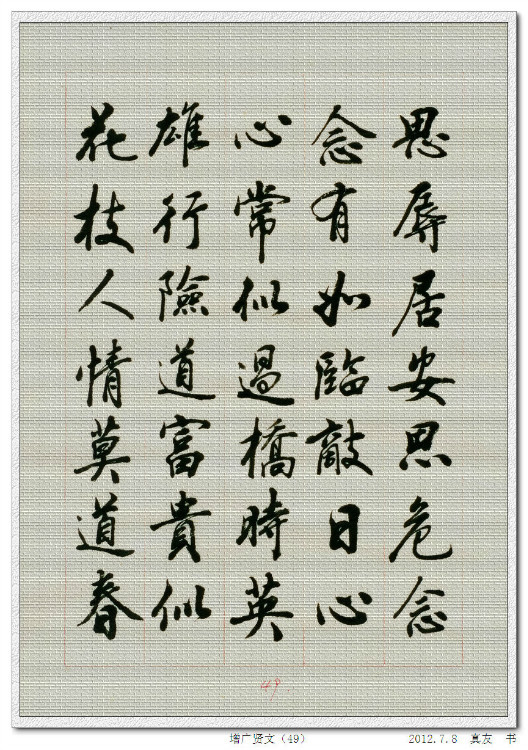 思辱居安思危念
念有如臨敵日心
心常似過橋時英
雄行險道富貴似
花枝人情莫道春
49
增广贤文（49）
2012.7.8 真友 书